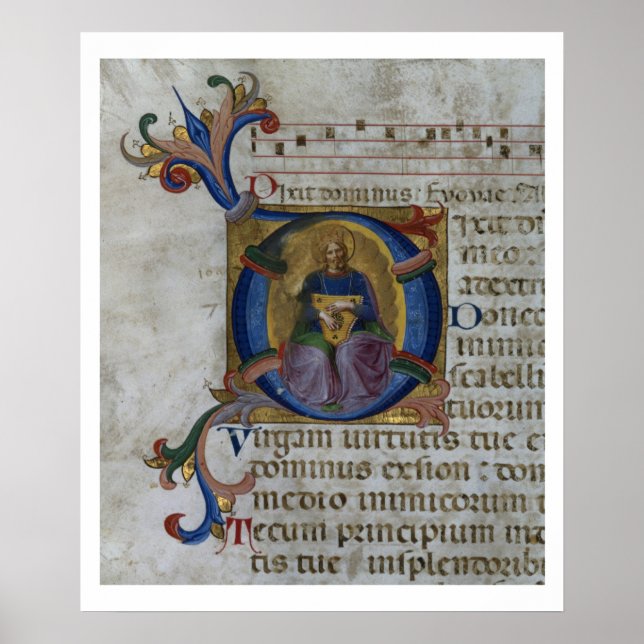 Dixit dominus: Evovae: A
Dixit di
meo:
a dextri
Donec
inimic
scabell
tuorum
Virgam virtutis tue e
dominus exsion: dom
medio inimicorum
Tecum principium in
tis tue insplendorib